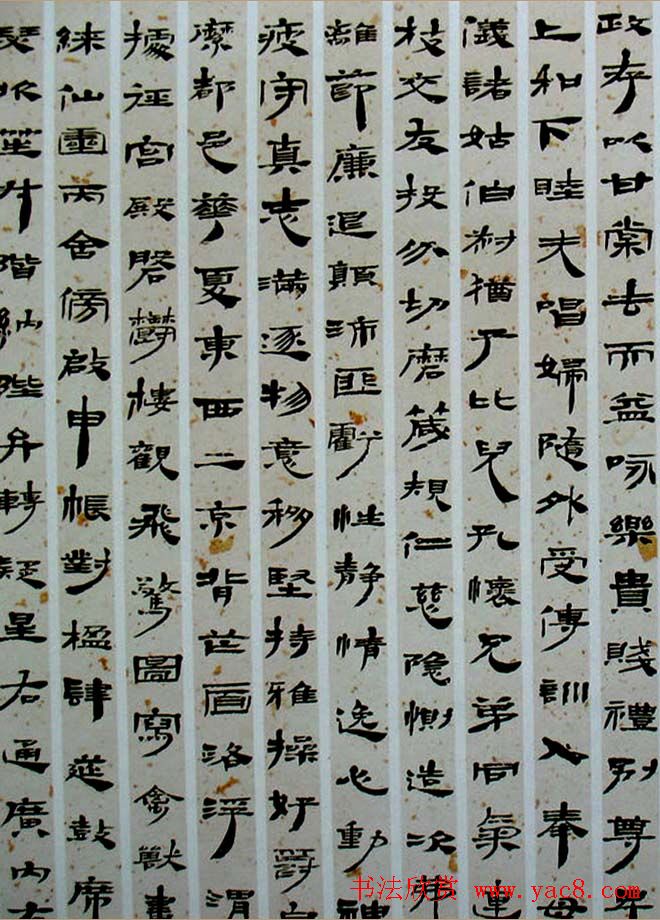 政存以甘棠去而益咏樂貴賤禮別尊卑
上和下睦夫唱婦隨外受傅訓入奉母
儀諸姑伯叔猶子比兒孔懷兄弟同氣連
枝交友投分切磨箴規仁慈隱惻造次弗
離節廉退顛沛匪虧性靜情逸心動神
疲守真志滿逐物意移堅持雅操好爵自
縻都邑華夏東西二京背芒面洛浮渭
據涇宮殿磐鬱樓觀飛驚圖寫禽獸畫
綵仙靈丙舍傍啟申帳對楹肆筵設席
瑟吹笙升階納陛弁轉疑星右通廣內左
书法欣赏 www.yac8.com